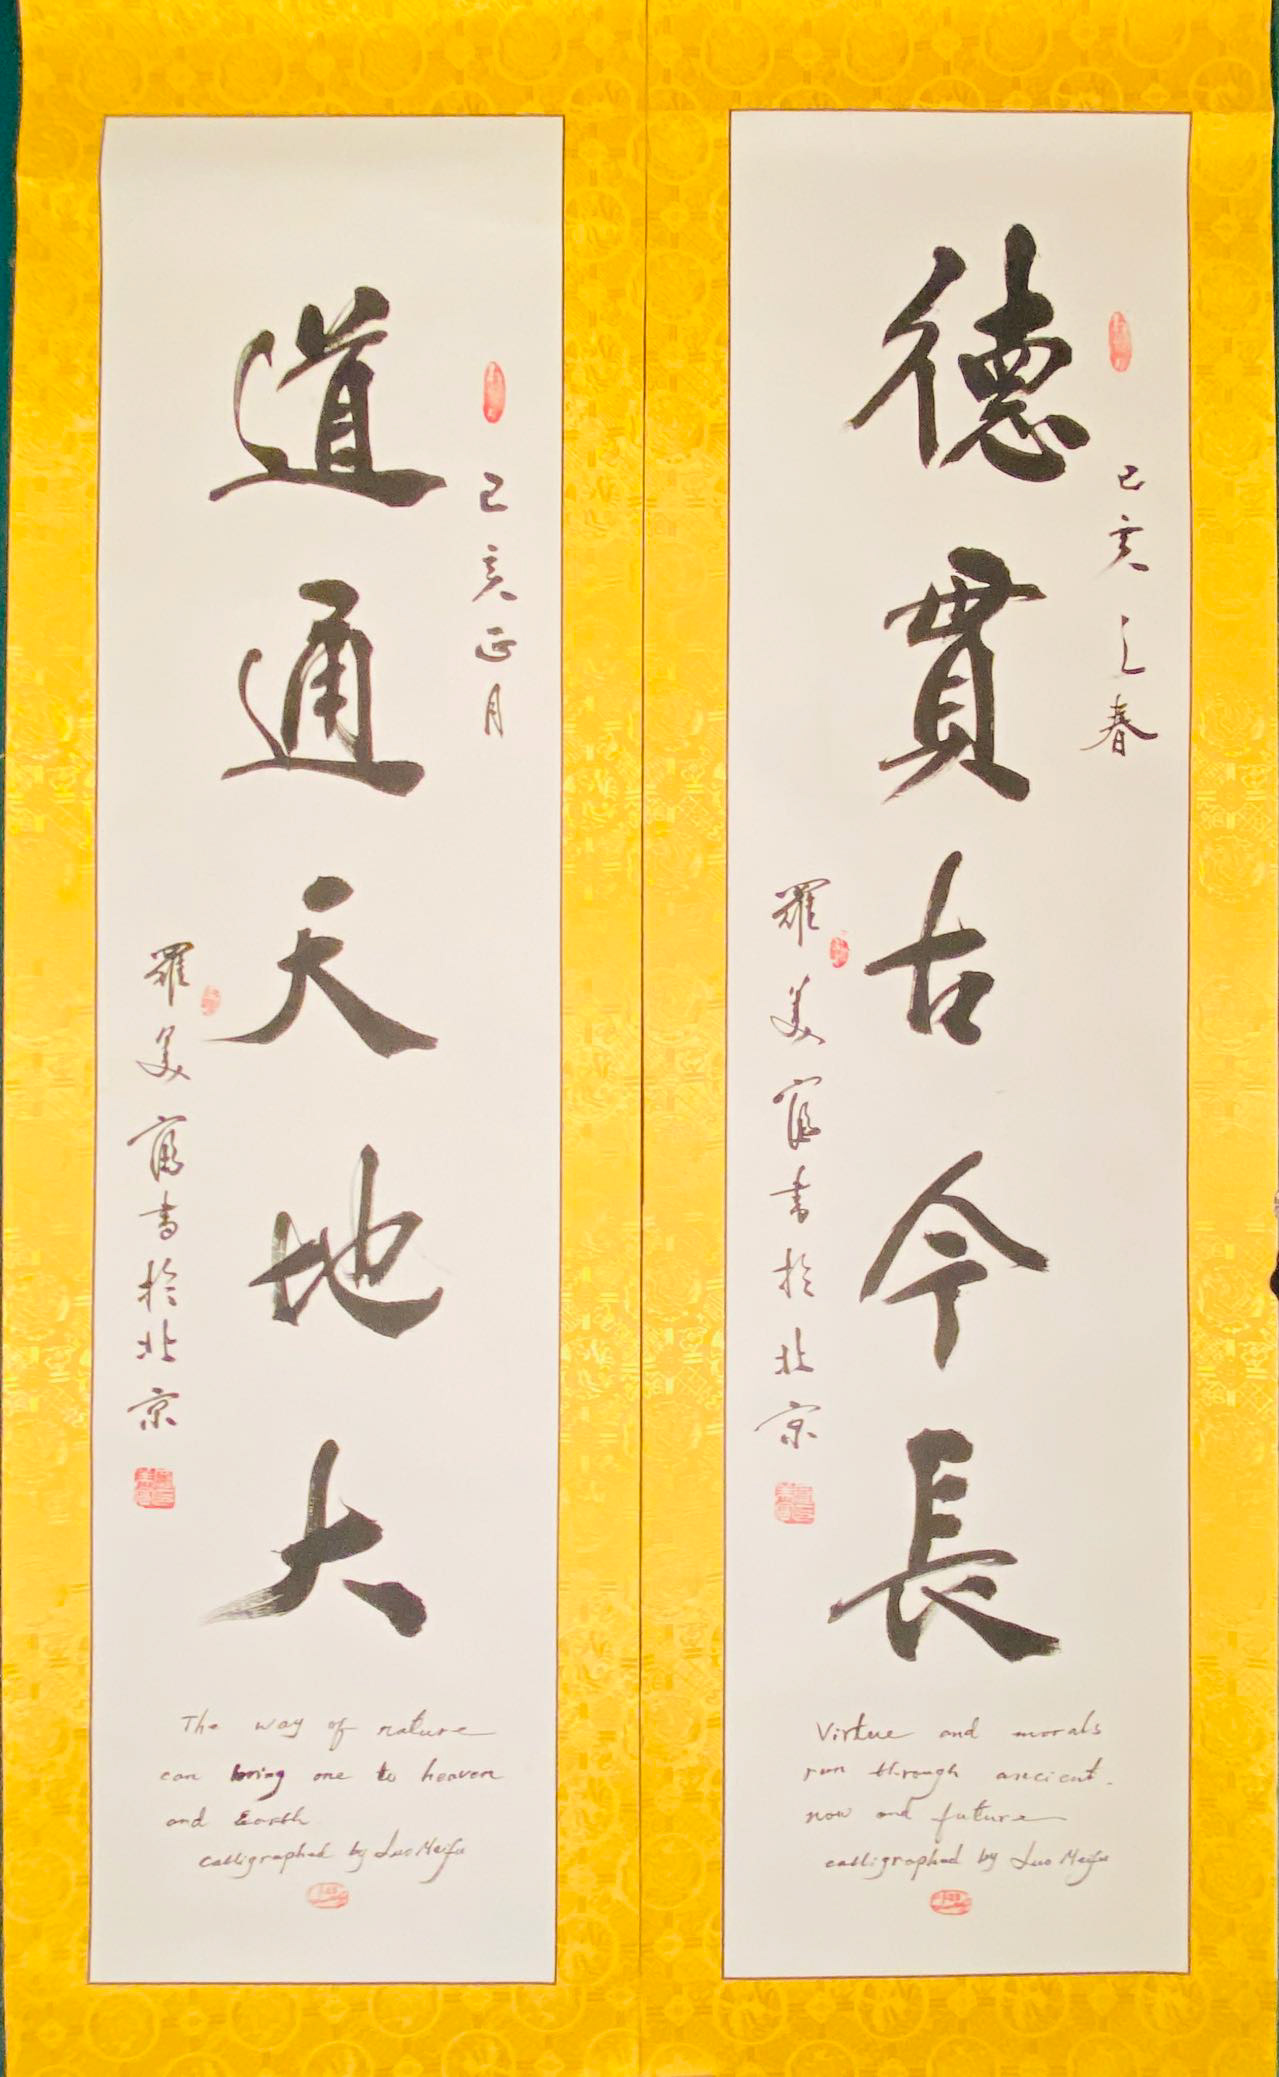 己亥之春
德貫古今長
羅美富書於北京
Virtue and morals
run through ancient.
now and future
calligraphed by Luo Meifu
己亥正月
道通天地大
羅美富書於北京
The way of nature
can bring one to heaven
and Earth
calligraphed by Luo Meifu